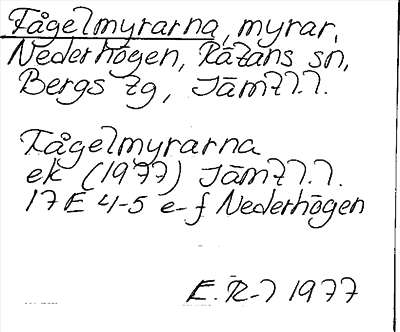 Fågelmyrarna, myrar,
Nederhögen, Rätans sn,
Bergs tg, Jämtl.
Fågelmyrarna
ek (1977) Jämtl.
17E 4-5 e-f Nederhögen
E.R-7 1977